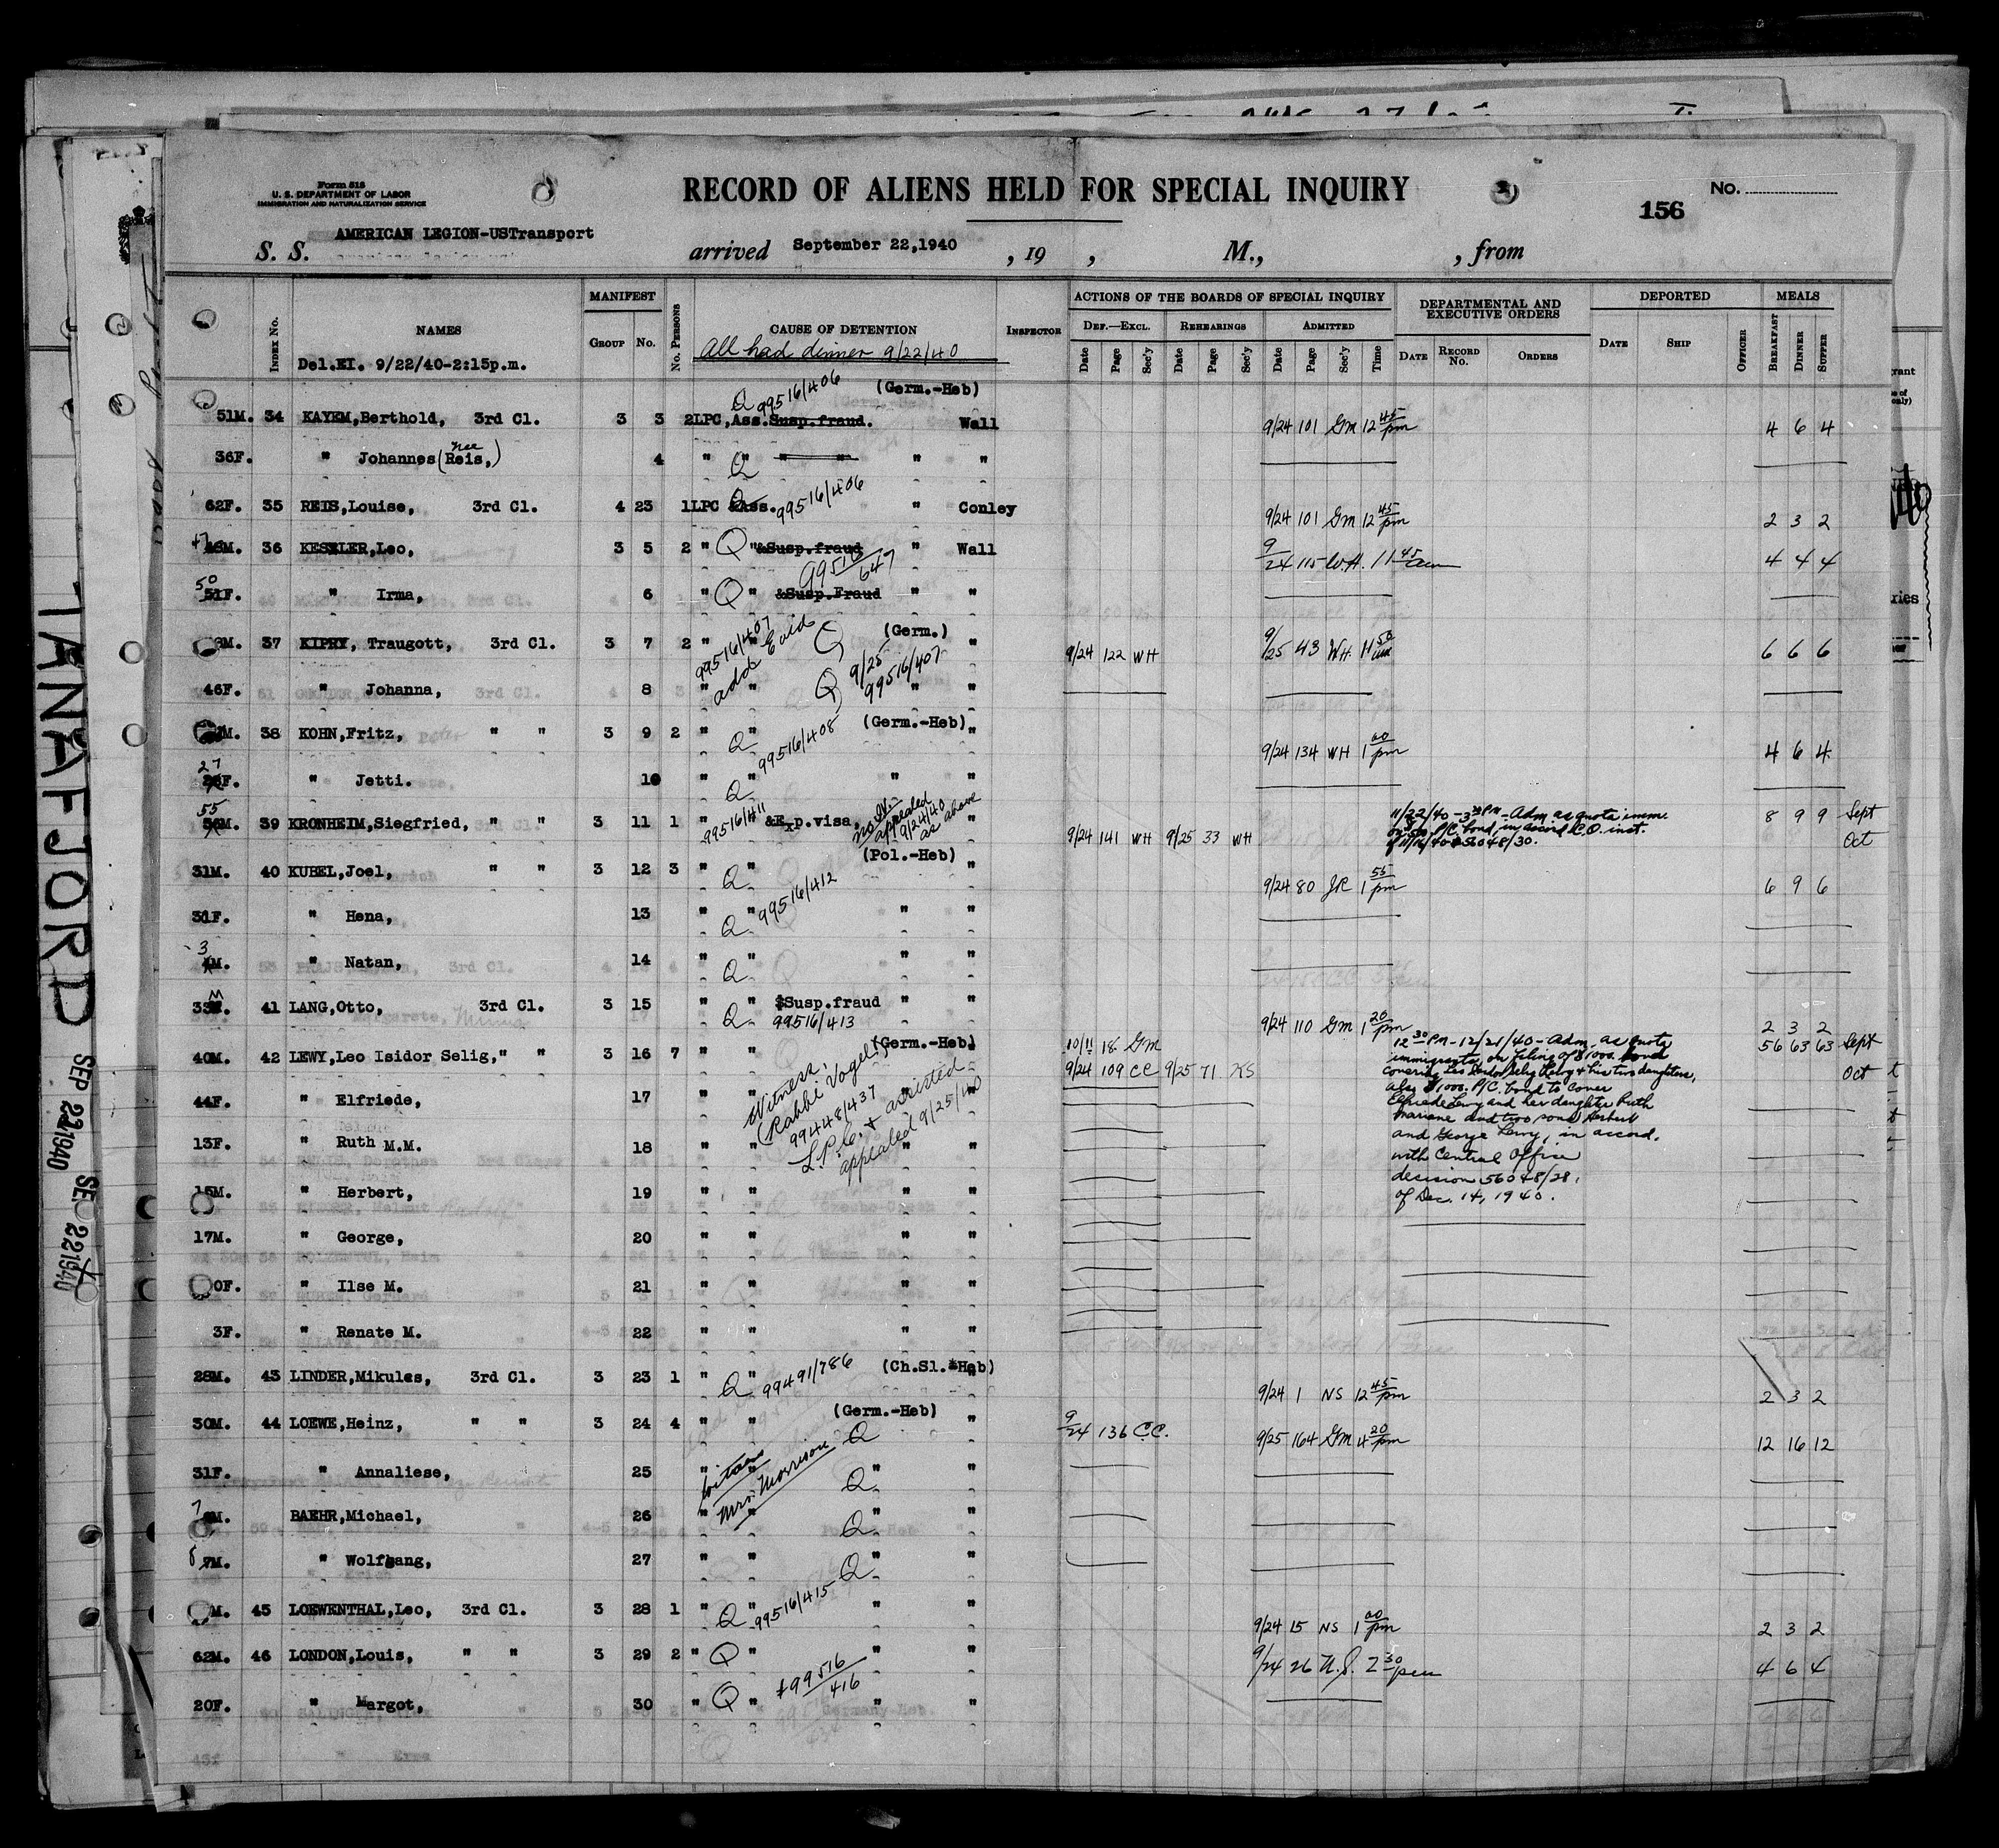 Form 518
U. S. DEPARTMENT OF LABOR
IMMIGRATION AND NATURALIZATION SERVICE
RECORD OF ALIENS HELD FOR SPECIAL INQUIRY
No.
156
S. S. AMERICAN LEGION-USTransport arrived September 22,1940 , 19 , M., , from
INDEX No. NAMES MANIFEST GROUP No. No. PERSONS CAUSE OF DETENTION INSPECTOR ACTIONS OF THE BOARDS OF SPECIAL INQUIRY DEPARTMENTAL AND EXECUTIVE ORDERS DEPORTED MEALS
DEF.—EXCL. REHEARINGS ADMITTED
Date Page Sec'y Date Page Sec'y Date Page Sec'y Time DATE RECORD No. ORDERS DATE SHIP OFFICER BREAKFAST DINNER SUPPER
Del.EI. 9/22/40-2:15p.m. All had dinner 9/22/40
Q 99516/406 (Germ.-Heb)
51M. 34 KAYEM,Berthold, 3rd Cl. 3 3 2 LPC,Ass.Susp.fraud. Wall 9/24 101 Gm 12 45 pm 4 6 4
36F. " Johannes (nee Reis,) 4 " " Q " " " "
62F. 35 REIS,Louise, 3rd Cl. 4 23 1 LPC &Ass. Q 99516/406 " Conley 9/24 101 Gm 12 45 pm 2 3 2
47 M. 36 KESSLER,Leo, 3 5 2 " Q "&Susp.fraud " Wall 9/24 115 W.H. 11 45 am 4 4 4
99516/647
50 51F. " Irma, 6 " Q " &Susp.Fraud " "
M. 37 KIPRY, Traugott, 3rd Cl. 3 7 2 " " 99516/407 add Evid Q (Germ.) " 9/24 122 WH 9/25 43 WH 11 50 am 6 6 6
46F. " Johanna, 8 " " Q 9/25 99516/407 " "
M. 38 KOHN,Fritz, " " 3 9 2 " " Q 99516/408 (Germ.-Heb) " 9/24 134 WH 1 00 pm 4 6 4
27 F. " Jetti. 10 " " Q " "
55 56M. 39 KRONHEIM,Siegfried, " " 3 11 1 " 99516/411 &Exp.visa, appealed 9/24/40 as above 9/24 141 WH 9/25 33 WH 11/22/40 - 3 PM - Adm as quota imm. 8 9 9 Sept
on 500 P/C bond, in accord C.O. inst. Oct
of 11/16/40 56048/30.
31M. 40 KUBEL,Joel, " " 3 12 3 " " Q 99516/412 (Pol.-Heb) " 9/24 80 JR 1 55 pm 6 9 6
31F. " Hena, 13 " " Q " "
3 M. " Natan, 14 " " Q " "
33M 41 LANG,Otto, 3rd Cl. 3 15 " " &Susp.fraud " "
Q 99516/413 9/24 110 Gm 1 20 pm 2 3 2
40M. 42 LEWY,Leo Isidor Selig," " 3 16 7 " " (Germ.-Heb) " 10/11 18 Gm 56 63 63 Sept
9/24 109 CC 9/25 71 KS Oct
12 30 PM - 12/21/40 - Adm. as quota
immigrants, on filing of $1000. bond
covering Leo Isidor Selig Lewy & his two daughters,
also $1000. P/C bond to cover
Elfriede Lewy and her daughter Ruth
Mariane and two sons Herbert
and George Lewy, in accord.
with Central Office
decision 56048/28.
of Dec. 14, 1940.
Witness, (Rabbi Vogel) 99448/437
L.P.C. & assisted
appealed 9/25/40
44F. " Elfriede, 17 " "
13F. " Ruth M.M. 18 " " " "
15M. " Herbert, 19 " " " "
17M. " George, 20 " " " "
0F. " Ilse M. 21 " " " "
3F. " Renate M. 22 " " " "
28M. 43 LINDER,Mikulas, 3rd Cl. 3 23 1 " Q " 99491/786 (Ch.Sl.-Heb) 9/24 1 NS 12 45 pm 2 3 2
30M. 44 LOEWE,Heinz, " " 3 24 4 " " Q (Germ.-Heb) " 9/24 136 C.C. 9/25 164 Gm 4 20 pm 12 16 12
Mrs. Morrison
31F. " Annaliese, 25 " " Q " "
7 M. BAEHR,Michael, 26 " " Q " "
8 7M. " Wolfgang, 27 " " Q " "
M. 45 LOEWENTHAL,Leo, 3rd Cl. 3 28 1 " Q " 99516/415 " " 9/24 15 NS 1 00 pm 2 3 2
62M. 46 LONDON,Louis, " " 3 29 2 " Q " " " 9/24 26 N.S. 2 30 pm 4 6 4
99516/416
20F. " Margot, 30 " Q " " "
TANAFJORD
SEP 22 1940
SEP 22 1940